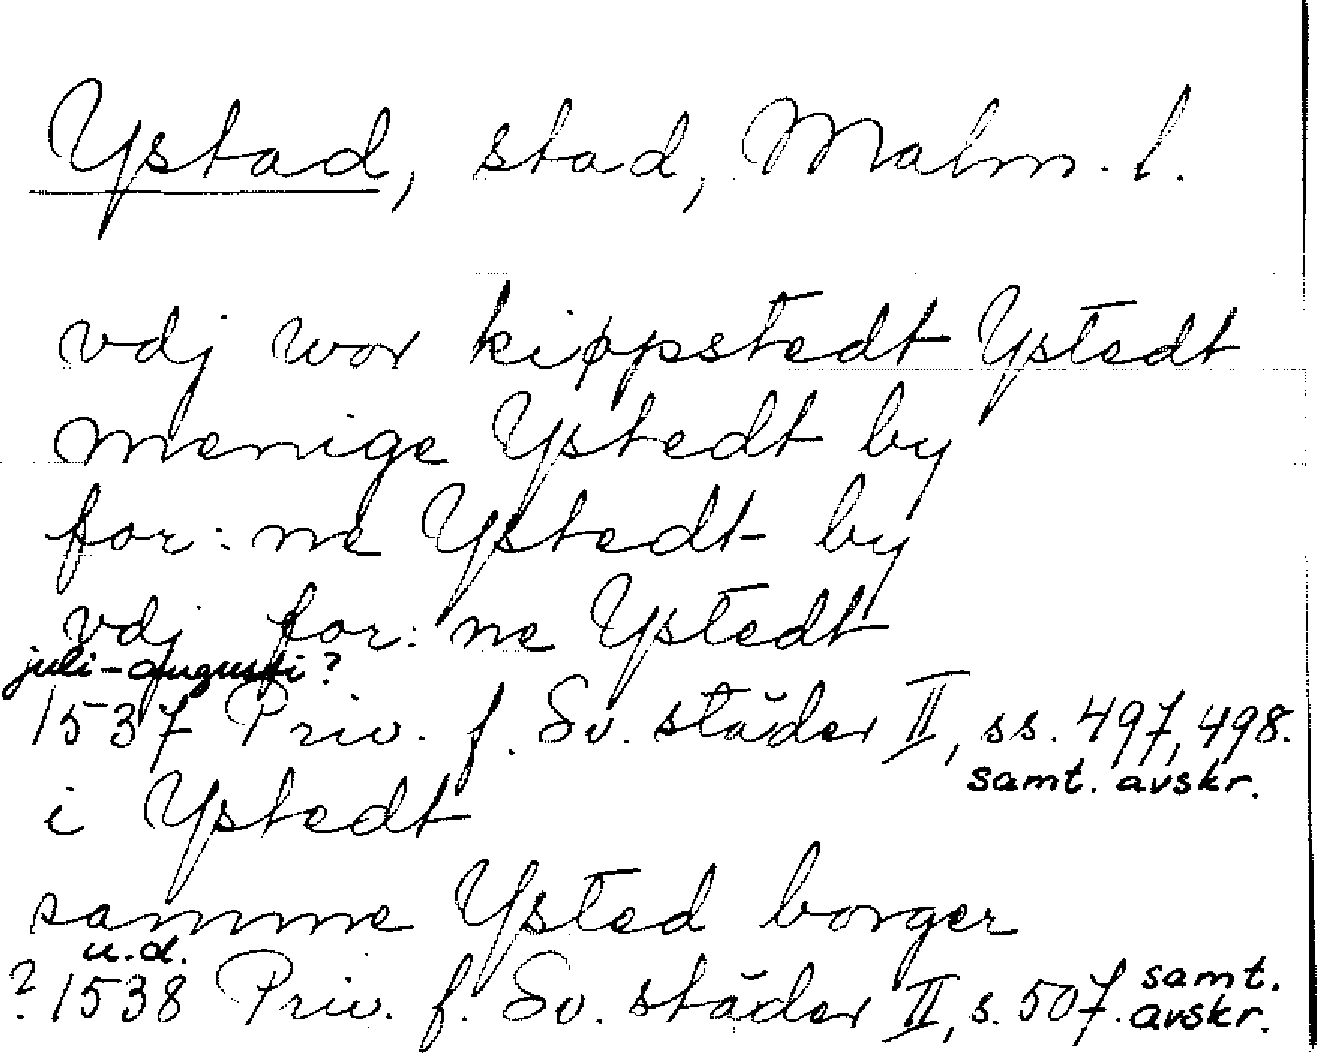 Ystad, stad, Malm. l.
vdj wor kippstedt Ystedt
menige Ystedt by
for: ne Ystedt by
vdj for: ne Ystedt
juli-augusti?
1537 Priv. f. Sv. städer II, ss. 497, 498.
samt. avskr.
i Ystedt
samme Ysted borger
u.d.
? 1538 Priv. f. Sv. städer II, s. 507. samt. avskr.